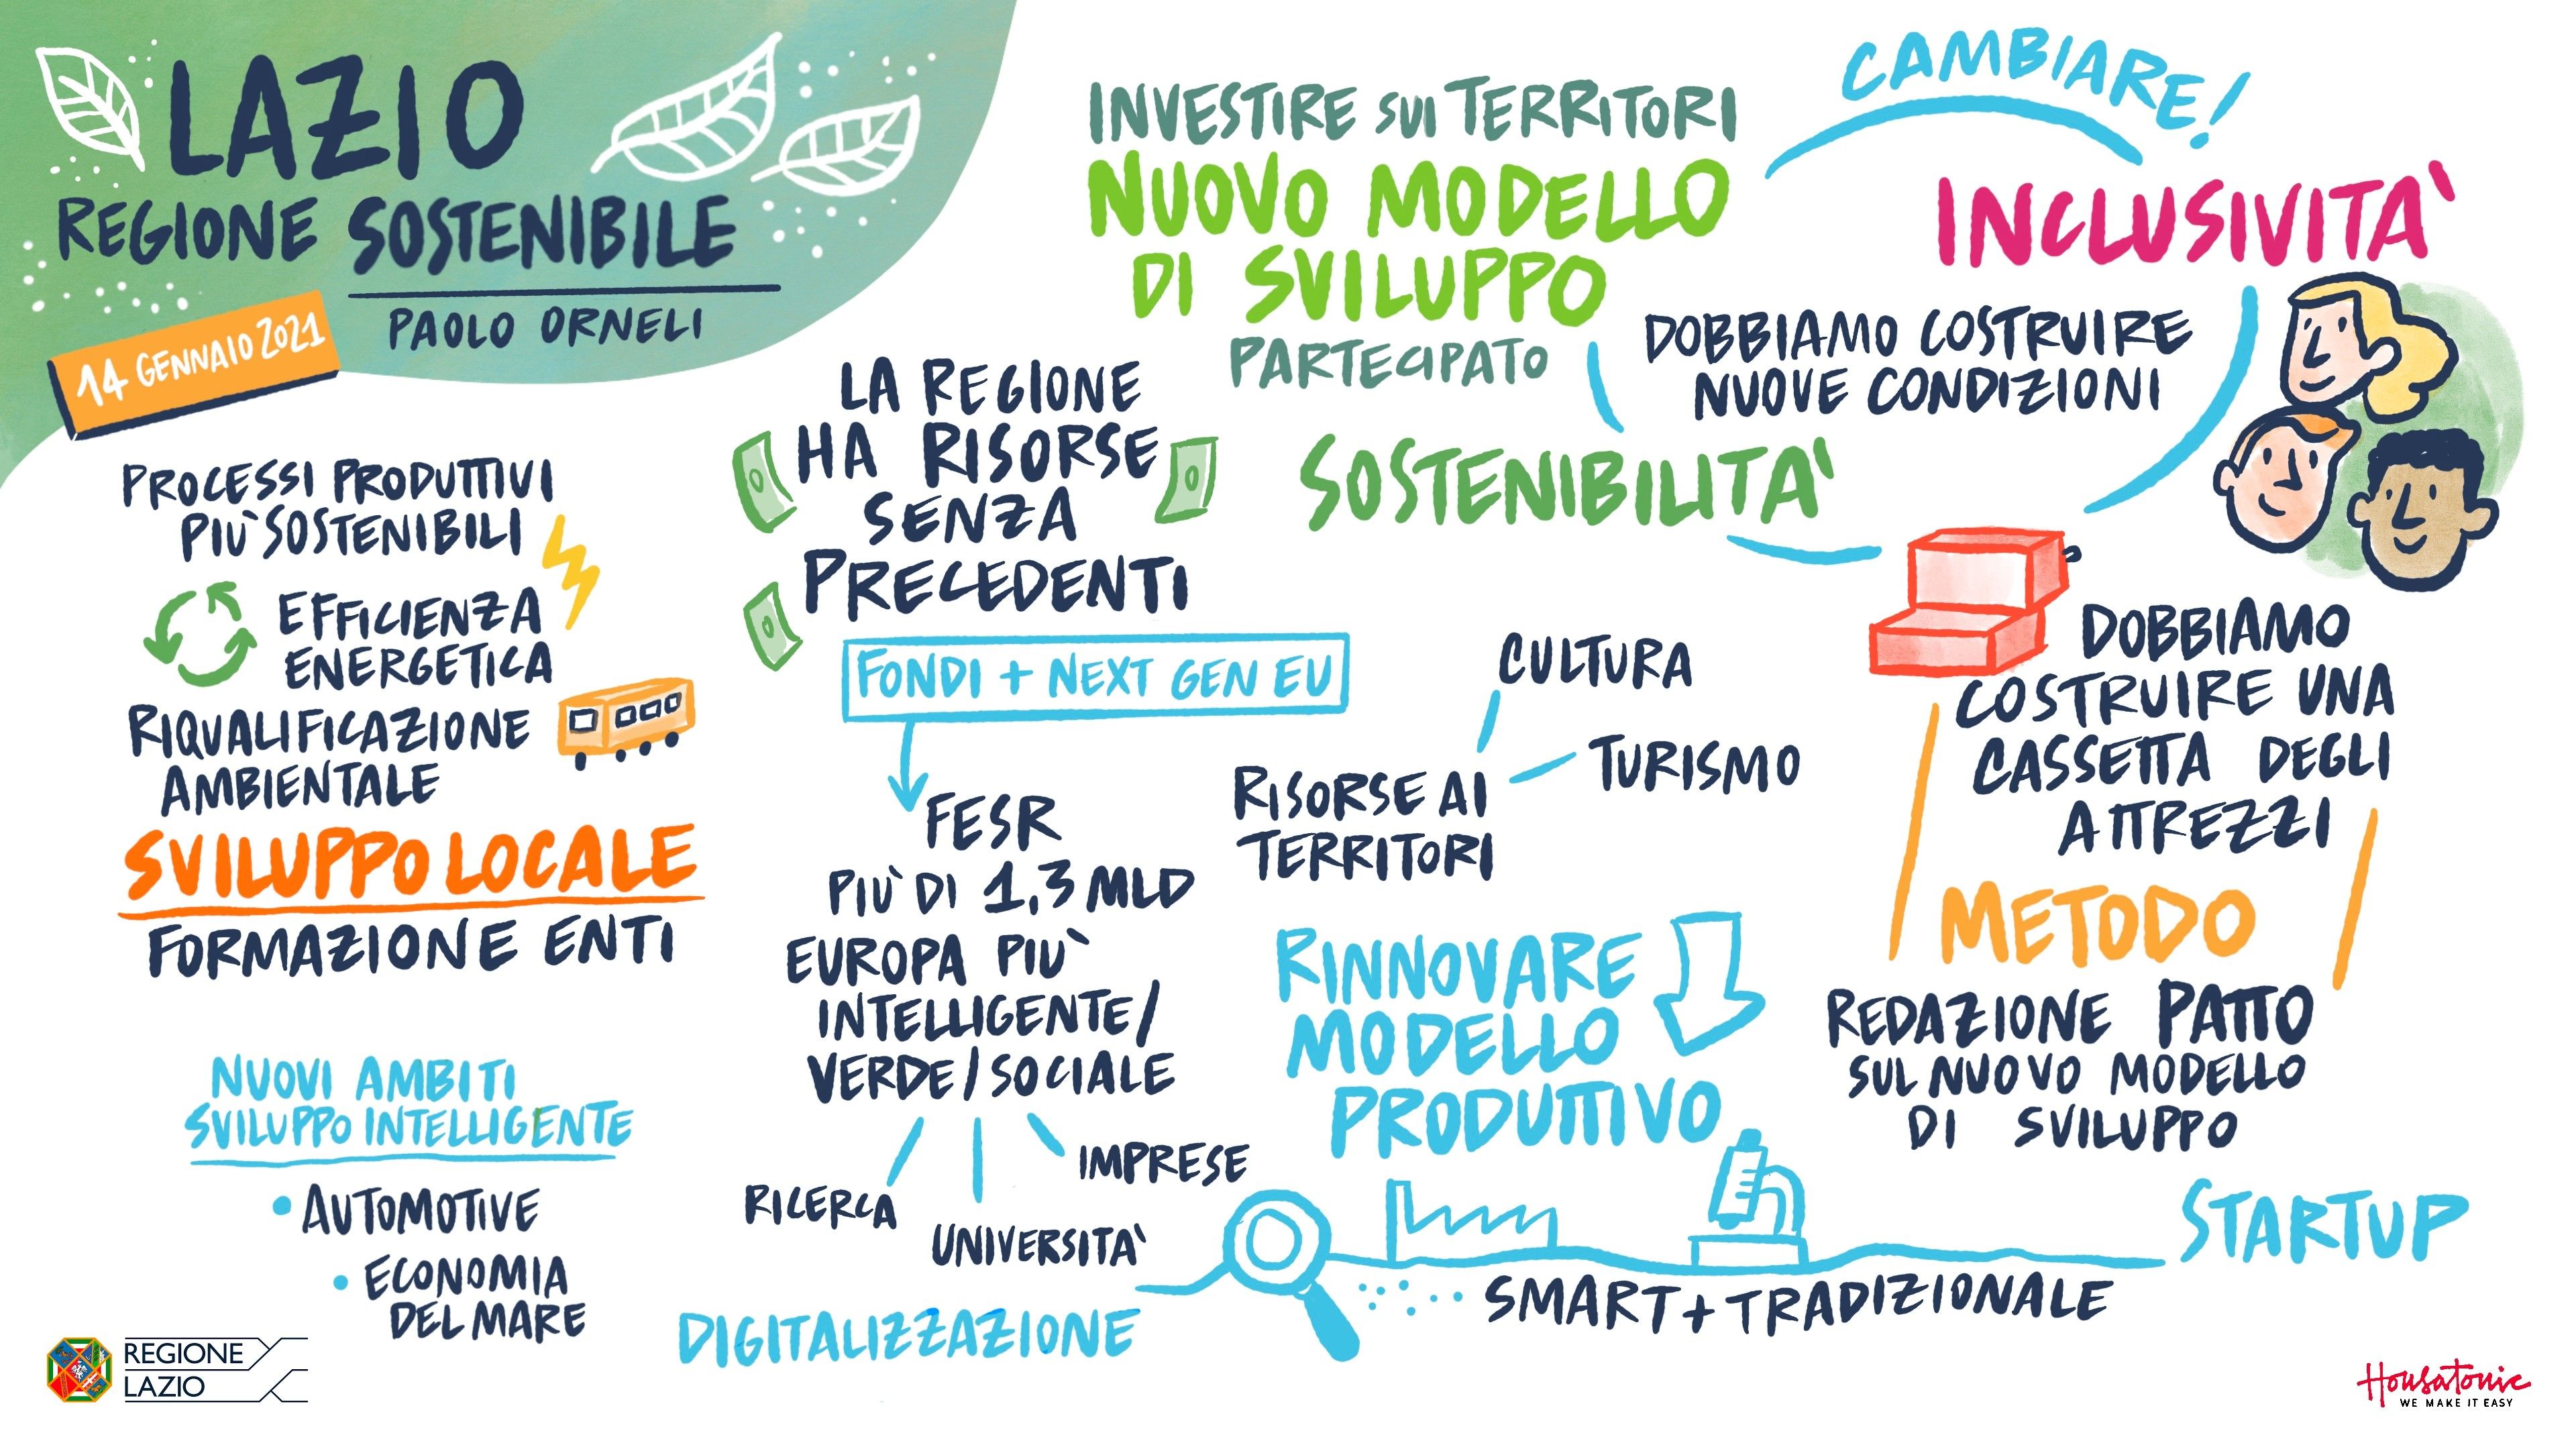 LAZIO
REGIONE SOSTENIBILE
PAOLO ORNELI
14 GENNAIO 2021
PROCESSI PRODUTTIVI
PIÙ SOSTENIBILI
EFFICIENZA
ENERGETICA
RIQUALIFICAZIONE
AMBIENTALE
SVILUPPO LOCALE
FORMAZIONE ENTI
NUOVI AMBITI
SVILUPPO INTELLIGENTE
• AUTOMOTIVE
• ECONOMIA
DEL MARE
REGIONE
LAZIO
LA REGIONE
HA RISORSE
SENZA
PRECEDENTI
FONDI + NEXT GEN EU
FESR
PIÙ DI 1,3 MLD
EUROPA PIÙ
INTELLIGENTE/
VERDE/SOCIALE
RICERCA
UNIVERSITA'
IMPRESE
DIGITALIZZAZIONE
INVESTIRE SUI TERRITORI
NUOVO MODELLO
DI SVILUPPO
PARTECIPATO
CAMBIARE!
INCLUSIVITA'
DOBBIAMO COSTRUIRE
NUOVE CONDIZIONI
SOSTENIBILITA'
CULTURA
TURISMO
RISORSE AI
TERRITORI
DOBBIAMO
COSTRUIRE UNA
CASSETTA DEGLI
ATTREZZI
METODO
REDAZIONE PATTO
SUL NUOVO MODELLO
DI SVILUPPO
RINNOVARE
MODELLO
PRODUTTIVO
STARTUP
SMART + TRADIZIONALE
Housatonic
WE MAKE IT EASY